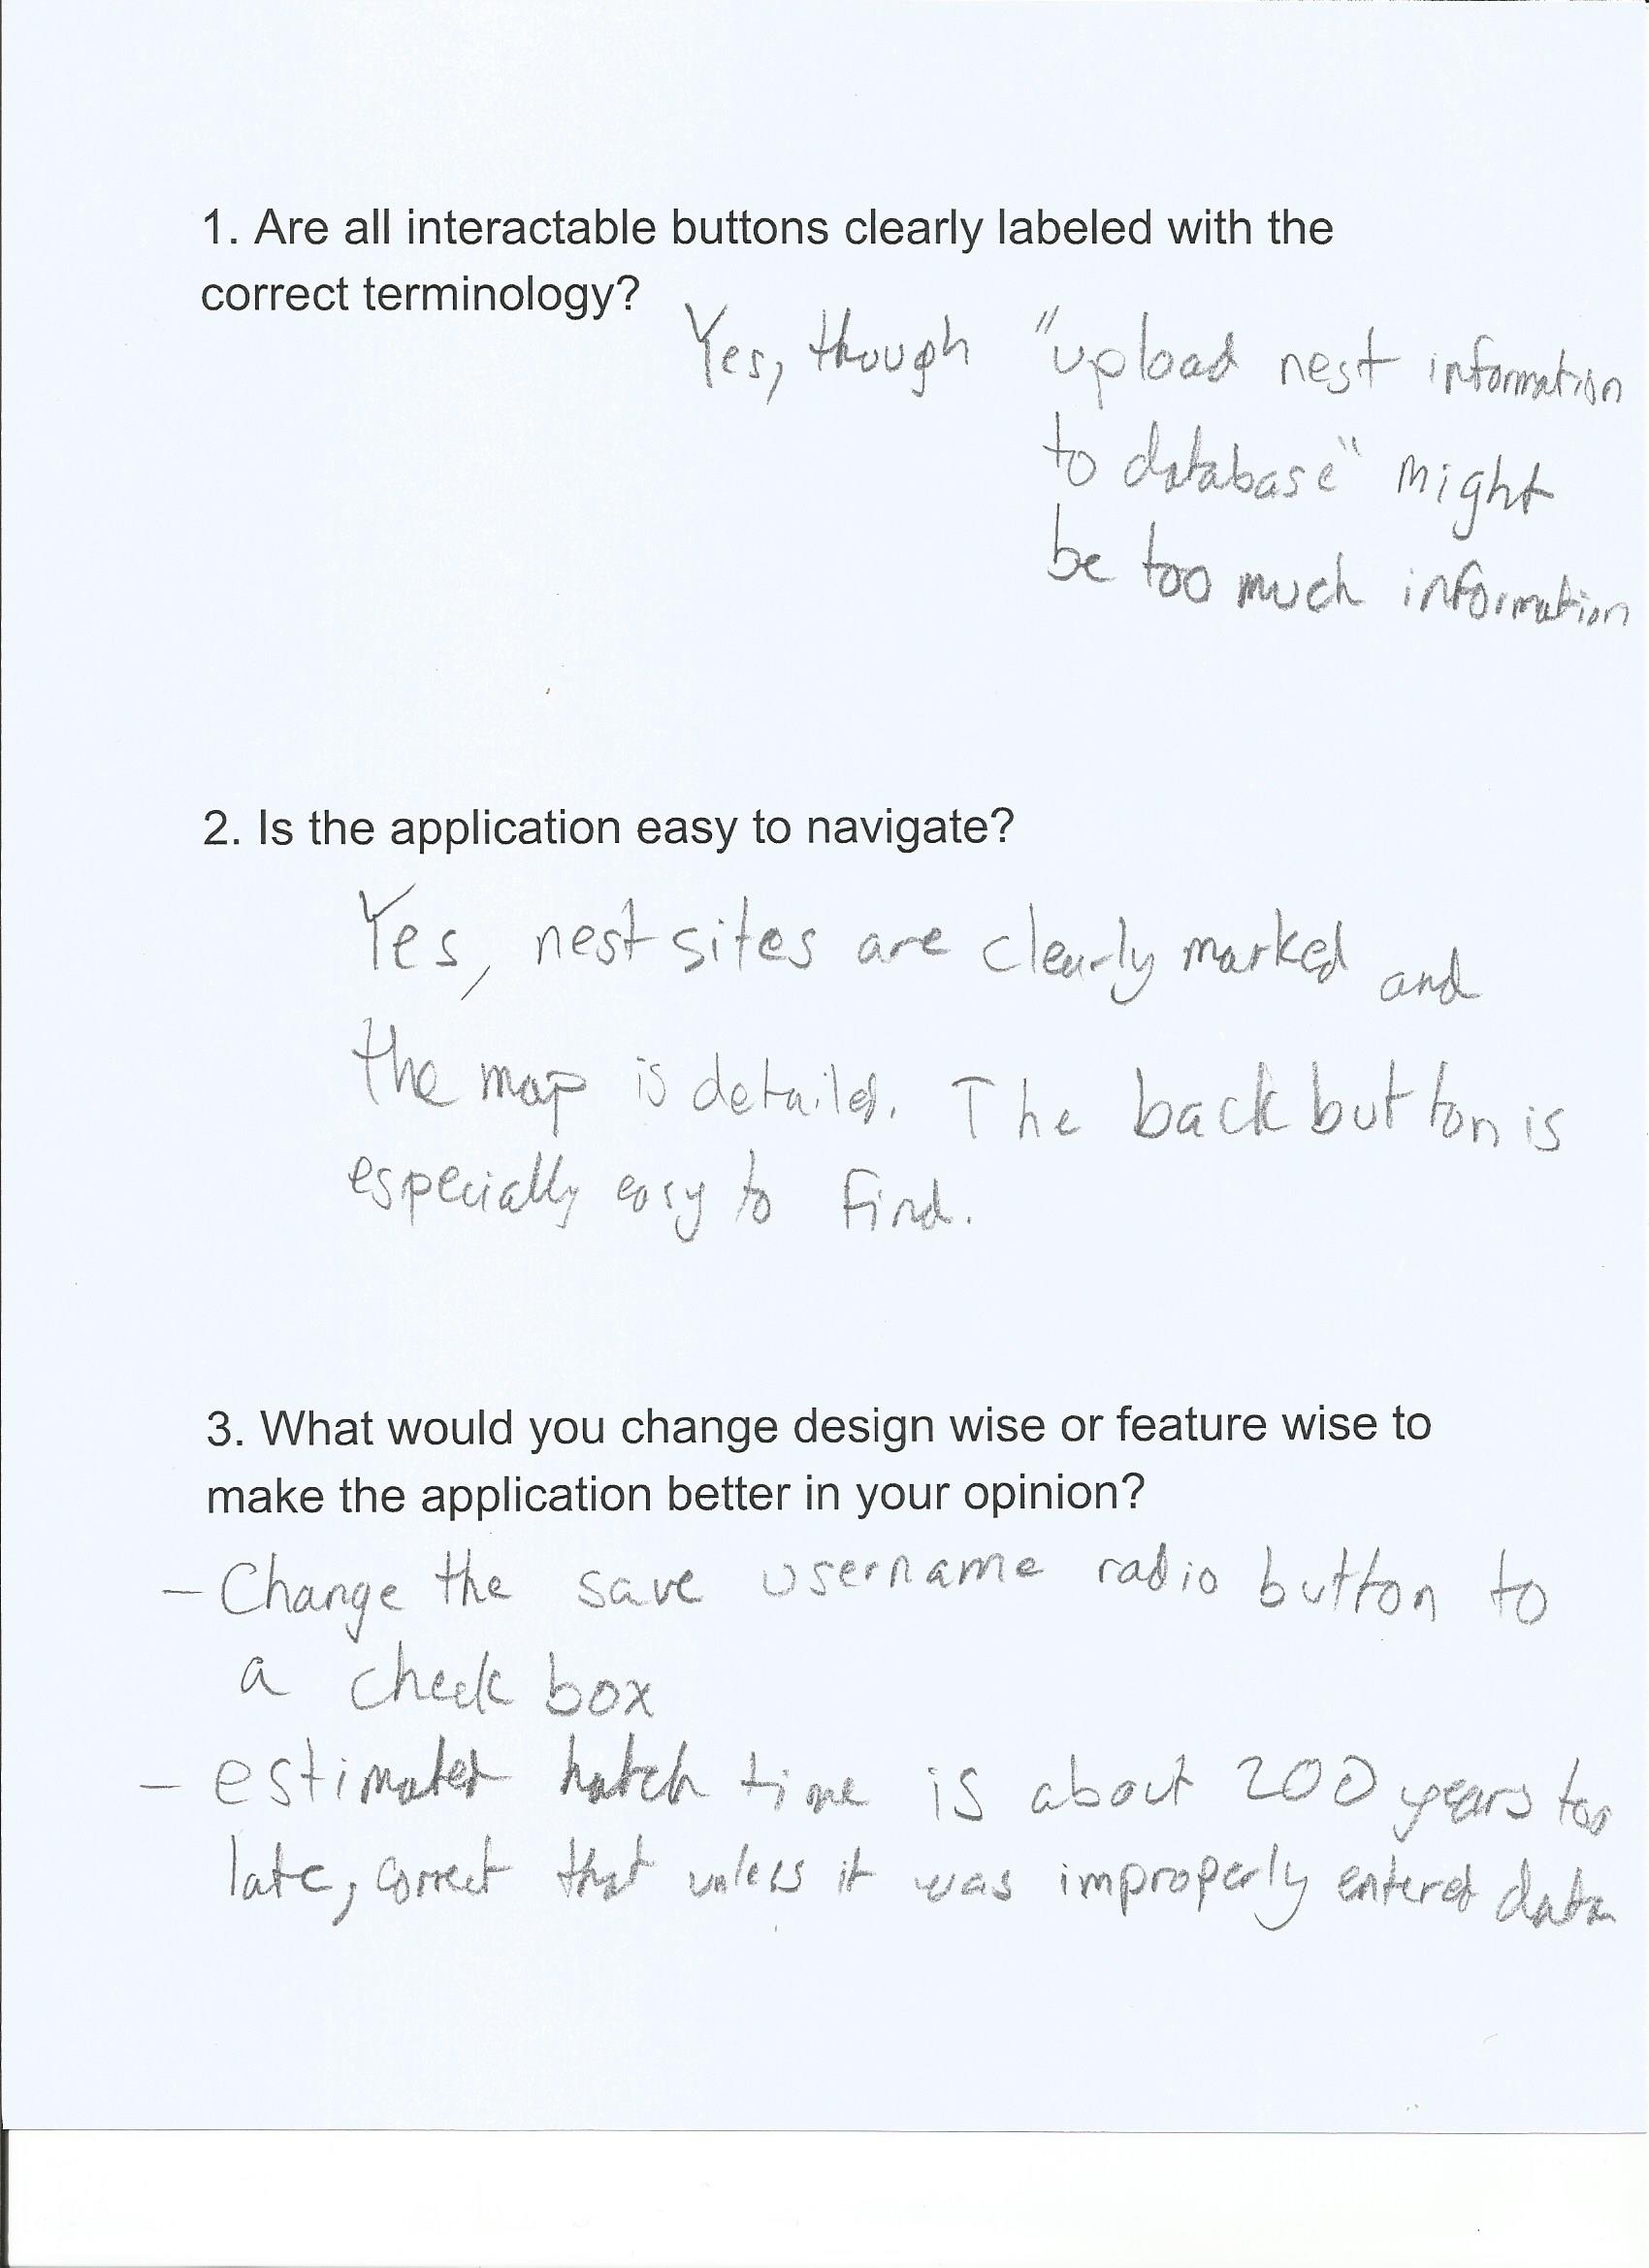 1. Are all interactable buttons clearly labeled with the
correct terminology?
Yes, though "upload nest information
to database" might
be too much information
2. Is the application easy to navigate?
Yes, nest sites are clearly marked and
the map is detailed. The back button is
especially easy to find.
3. What would you change design wise or feature wise to
make the application better in your opinion?
- Change the save username radio button to
a check box
- estimated hatch time is about 200 years too
late, correct that unless it was improperly entered data